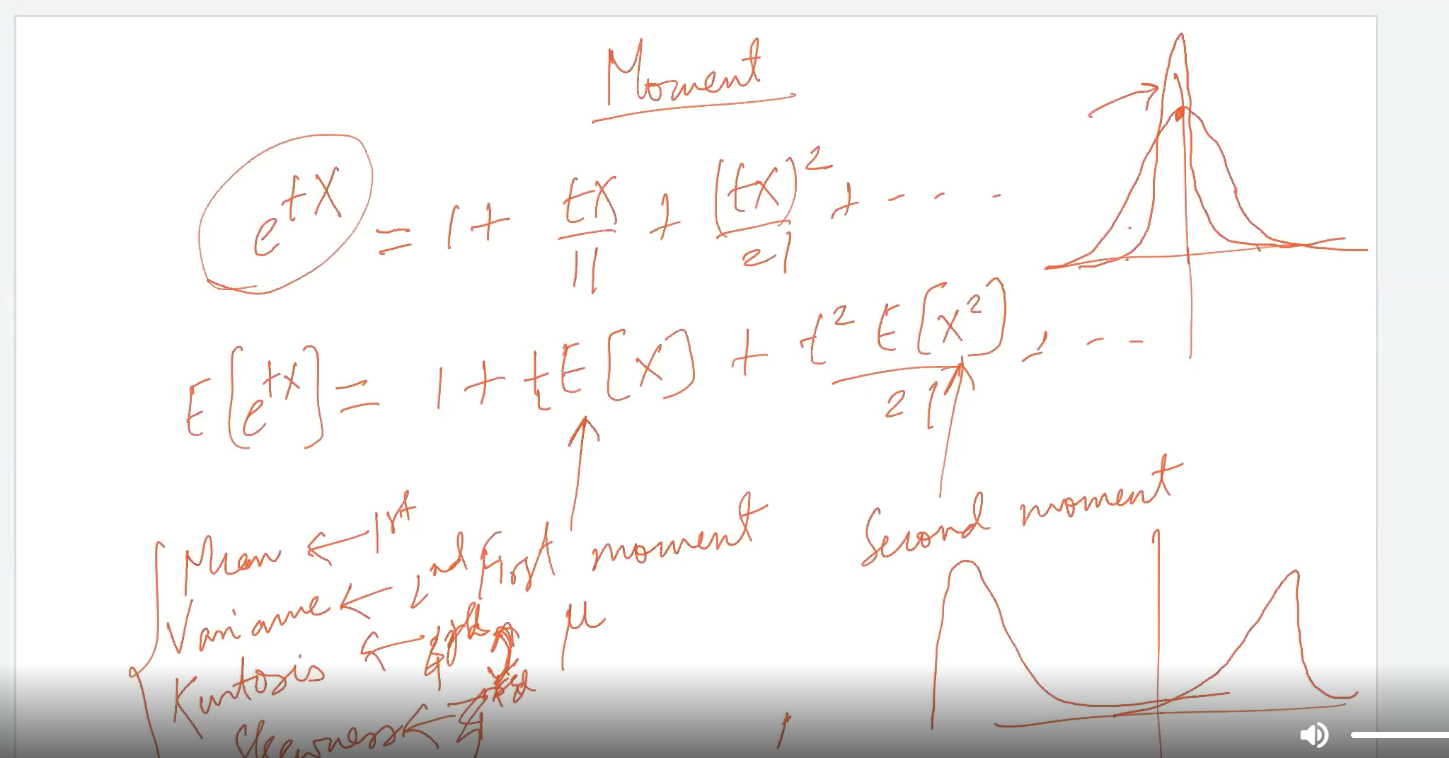 Moment
e^{tX} = 1 + \frac{tX}{1!} + \frac{(tX)^2}{2!} + - - - .
E[e^{tX}] = 1 + tE[X] + \frac{t^2 E[X^2]}{2!} + - -
Second moment
First moment
μ
Mean ← 1st
Variance ← 2nd
Kurtosis ←
Skewness ←